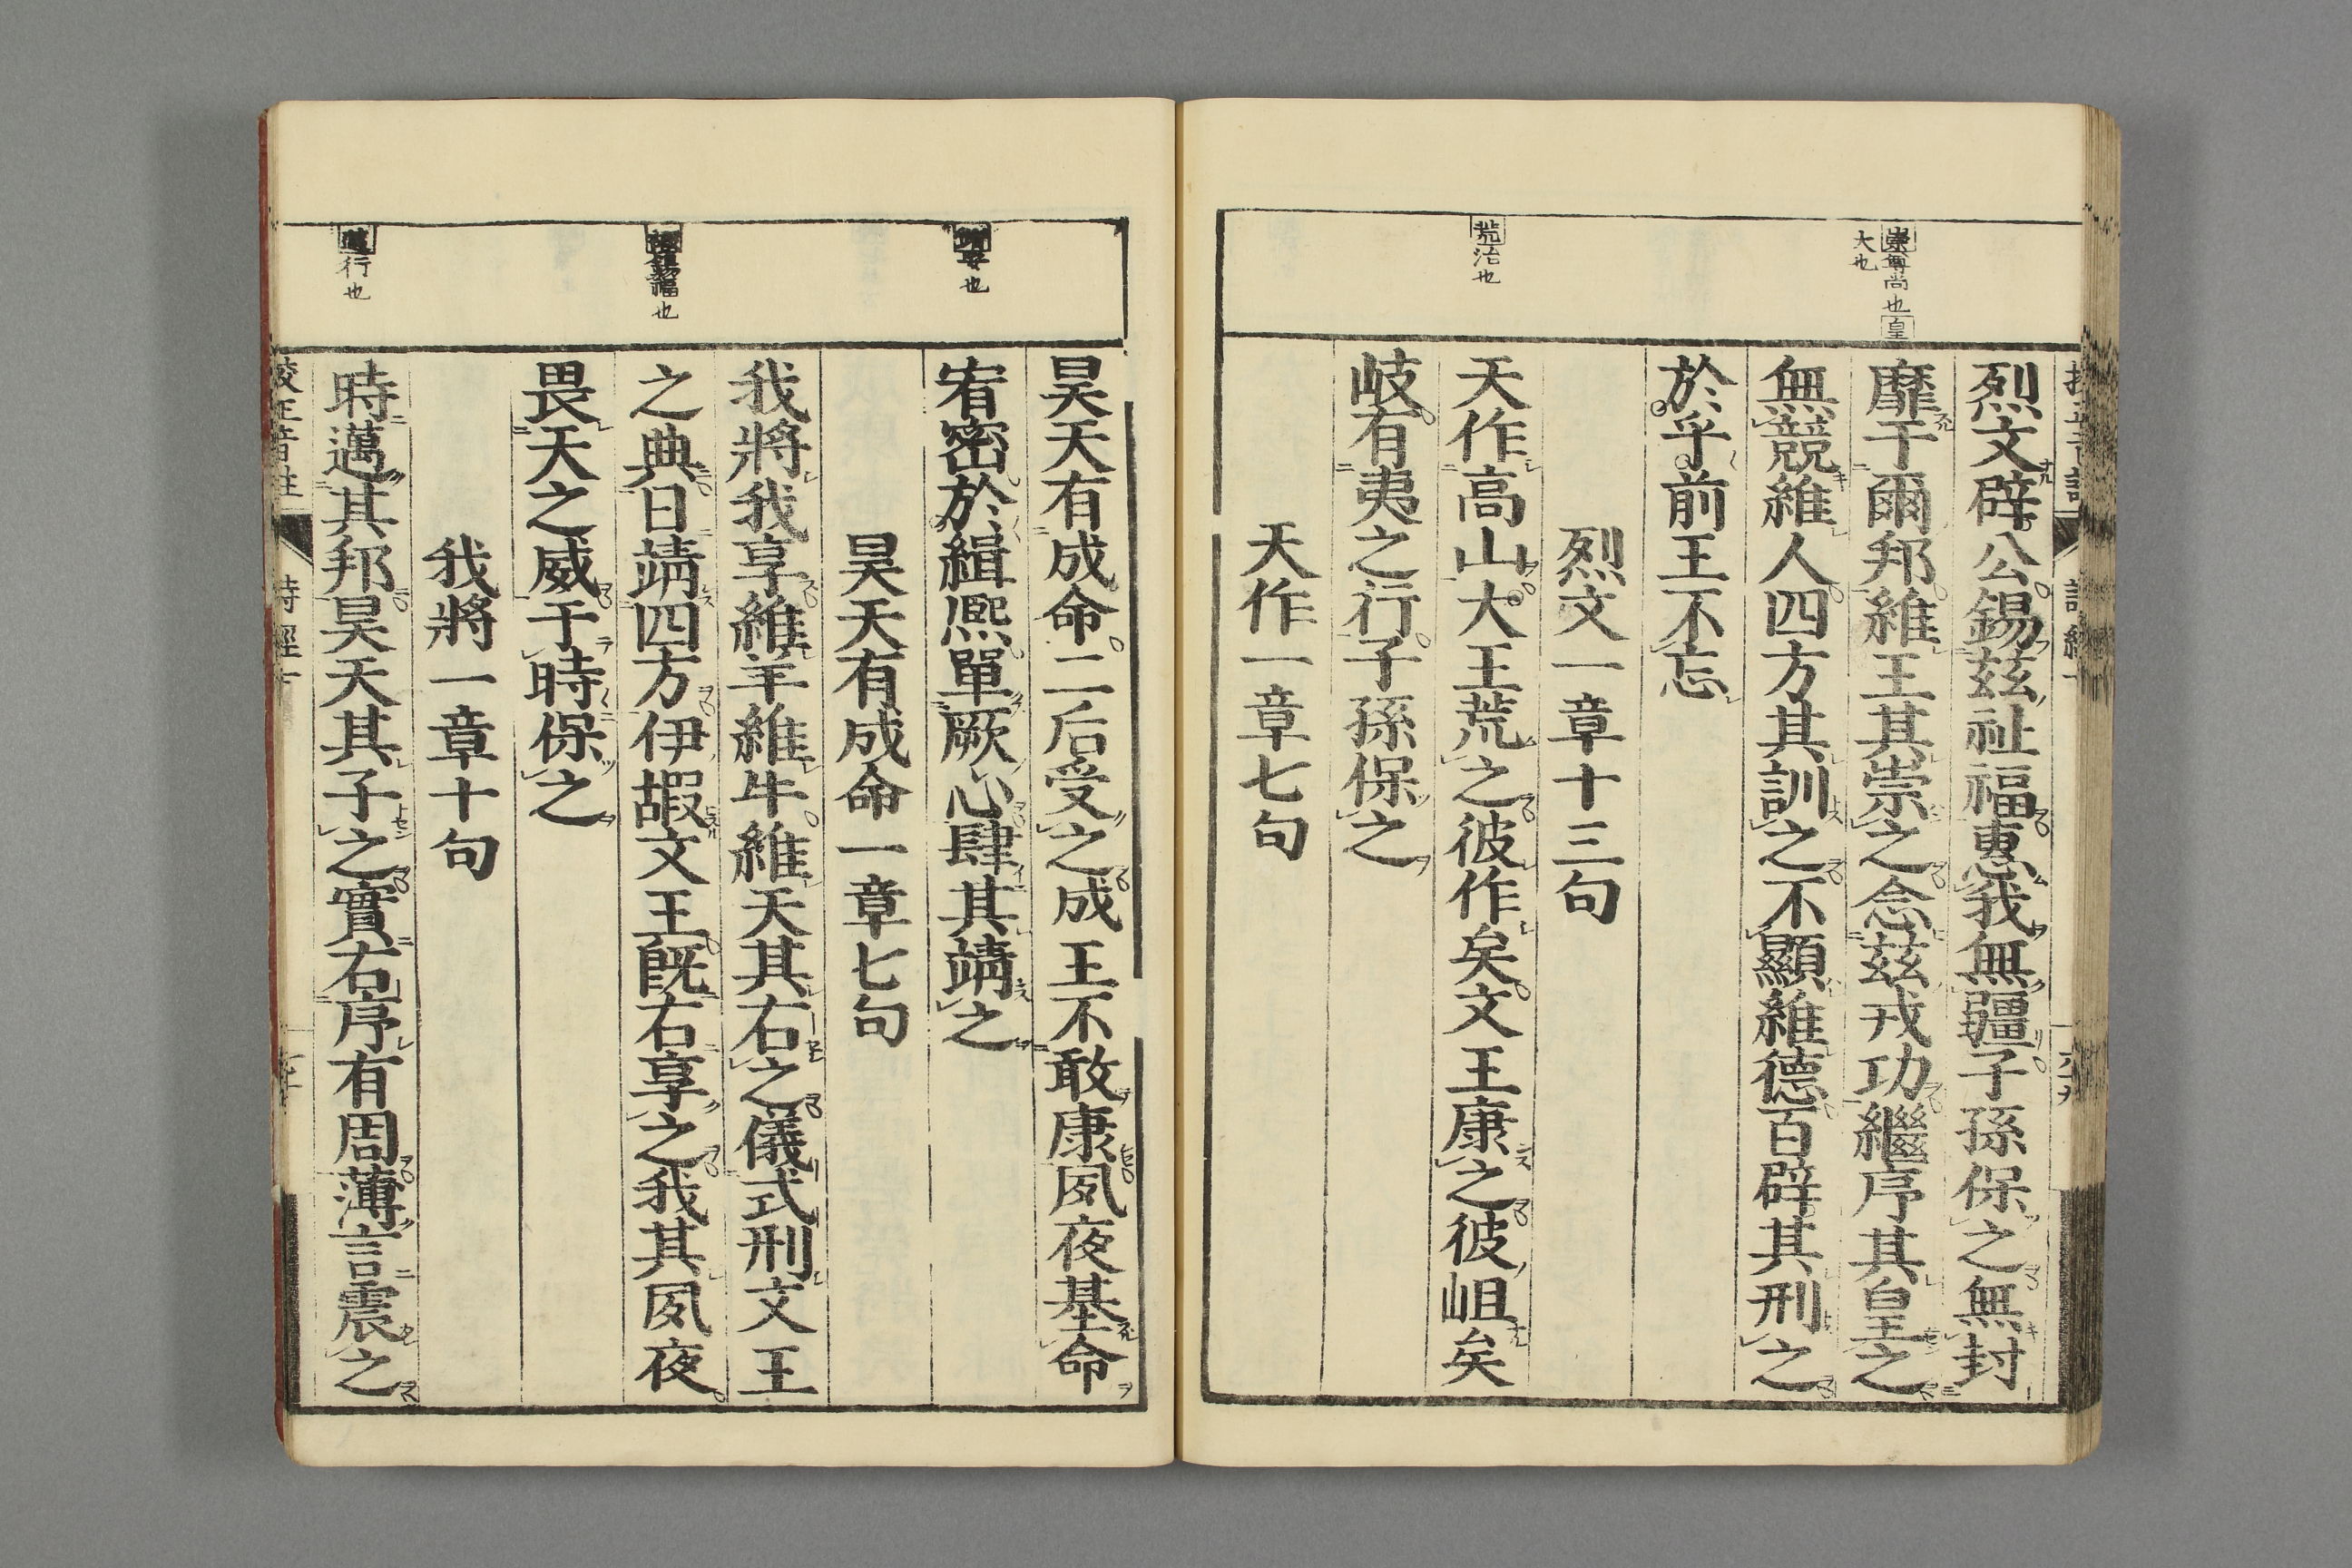 崇尊尚也皇
大也
荒治也
烈文辟公錫茲祉福惠我無疆子孫保之無封
靡于爾邦維王其崇之念茲戎功繼序其皇之
無競維人四方其訓之不顯維德百辟其刑之
於乎前王不忘
烈文一章十三句
天作高山大王荒之彼作矣文王康之彼岨矣
岐有夷之行子孫保之
天作一章七句
也
福也
行也
昊天有成命二后受之成王不敢康夙夜基命
宥密於緝熈單厥心肆其靖之
昊天有成命一章七句
我將我享維羊維牛維天其右之儀式刑文王
之典日靖四方伊嘏文王既右享之我其夙夜
畏天之威于時保之
我將一章十句
時邁其邦昊天其子之實右序有周薄言震之